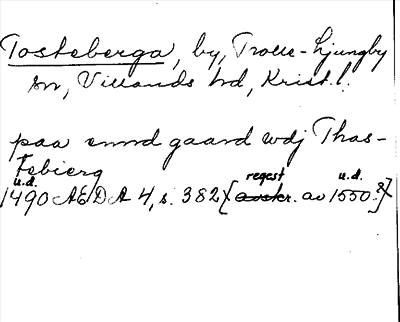 Tosteberga, by, Trolle-Ljungby
sn, Villands hd, Krist. l.
paa ennd gaard wdj Thas-
tebierg
u.d. regest u.d.
1490 AEDA 4, s. 382 [avskr. av 1550?]